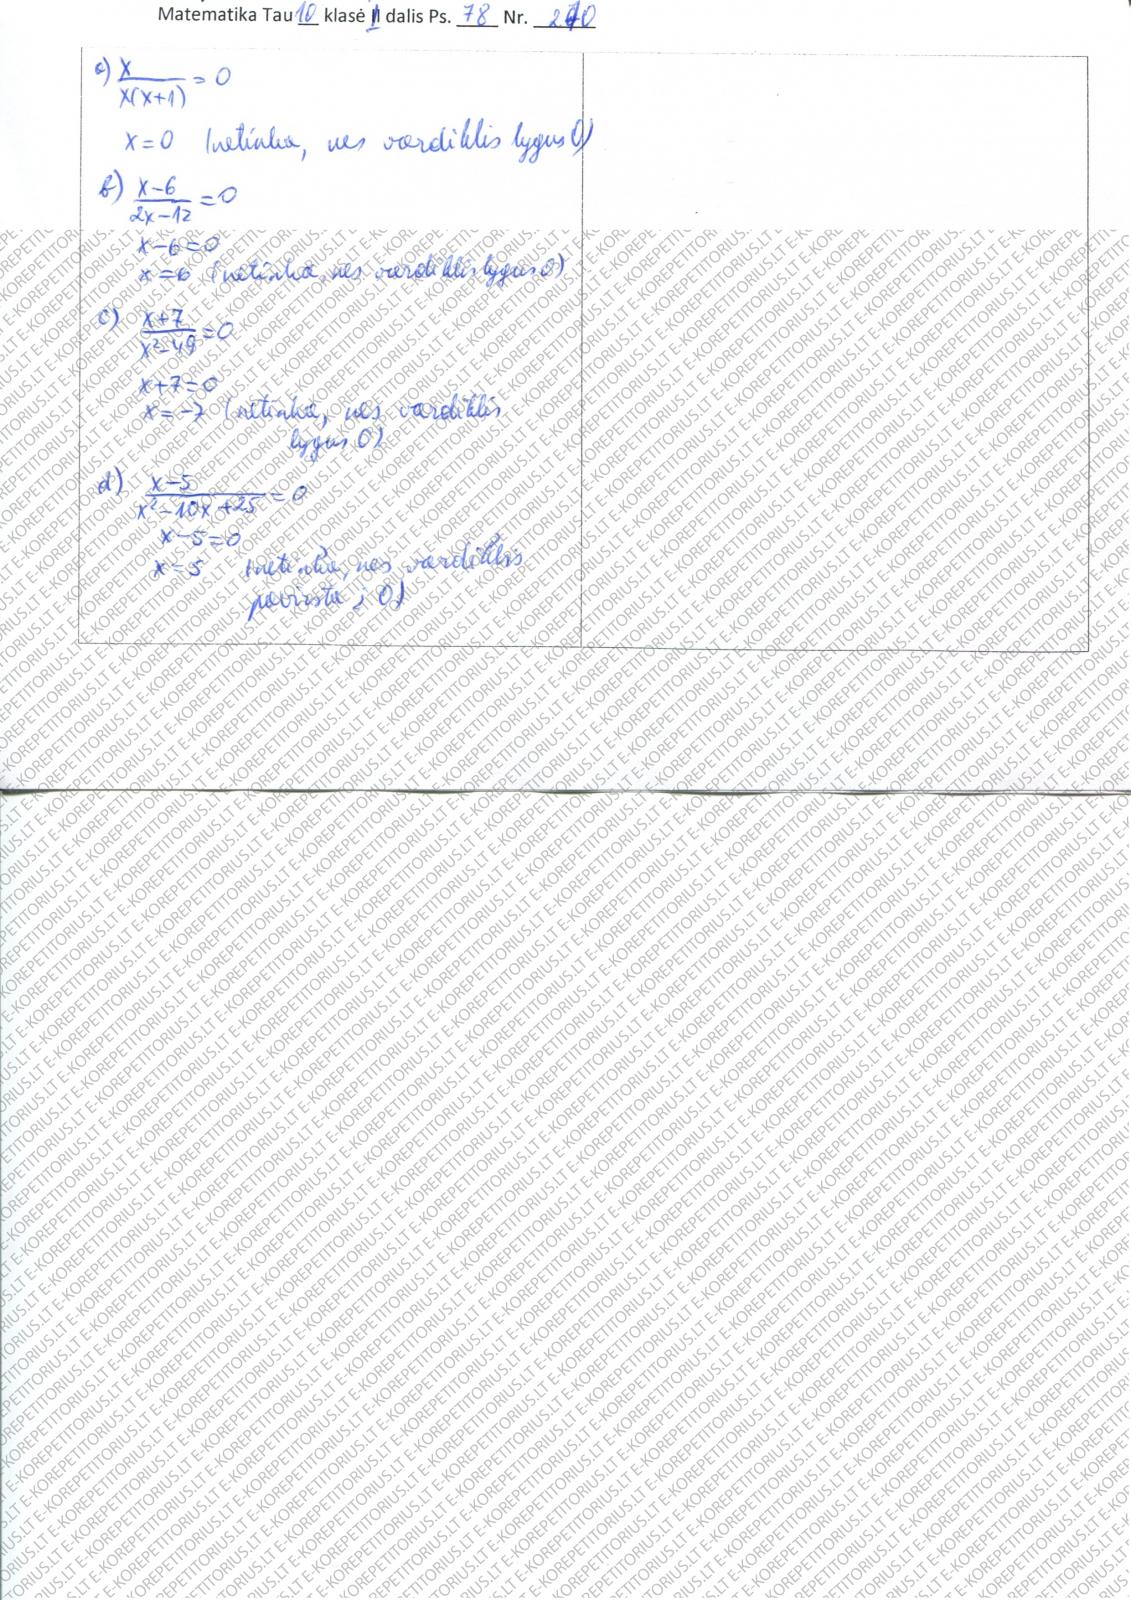 Matematika Tau 10 klasė II dalis Ps. 78 Nr. 270
a) x/x(x+1) = 0
x=0 (netinka, nes vardiklis lygus 0)
b) x-6/2x-12 = 0
x-6=0
x=6 (netinka, nes vardiklis lygus 0)
c) x+7/x²-49 = 0
x+7=0
x=-7 (netinka, nes vardiklis
lygus 0)
d) x-5/x²-10x+25 = 0
x-5=0
x=5 (netinka, nes vardiklis
pavirsta į 0)
E-KOREPETITORIUS.LT